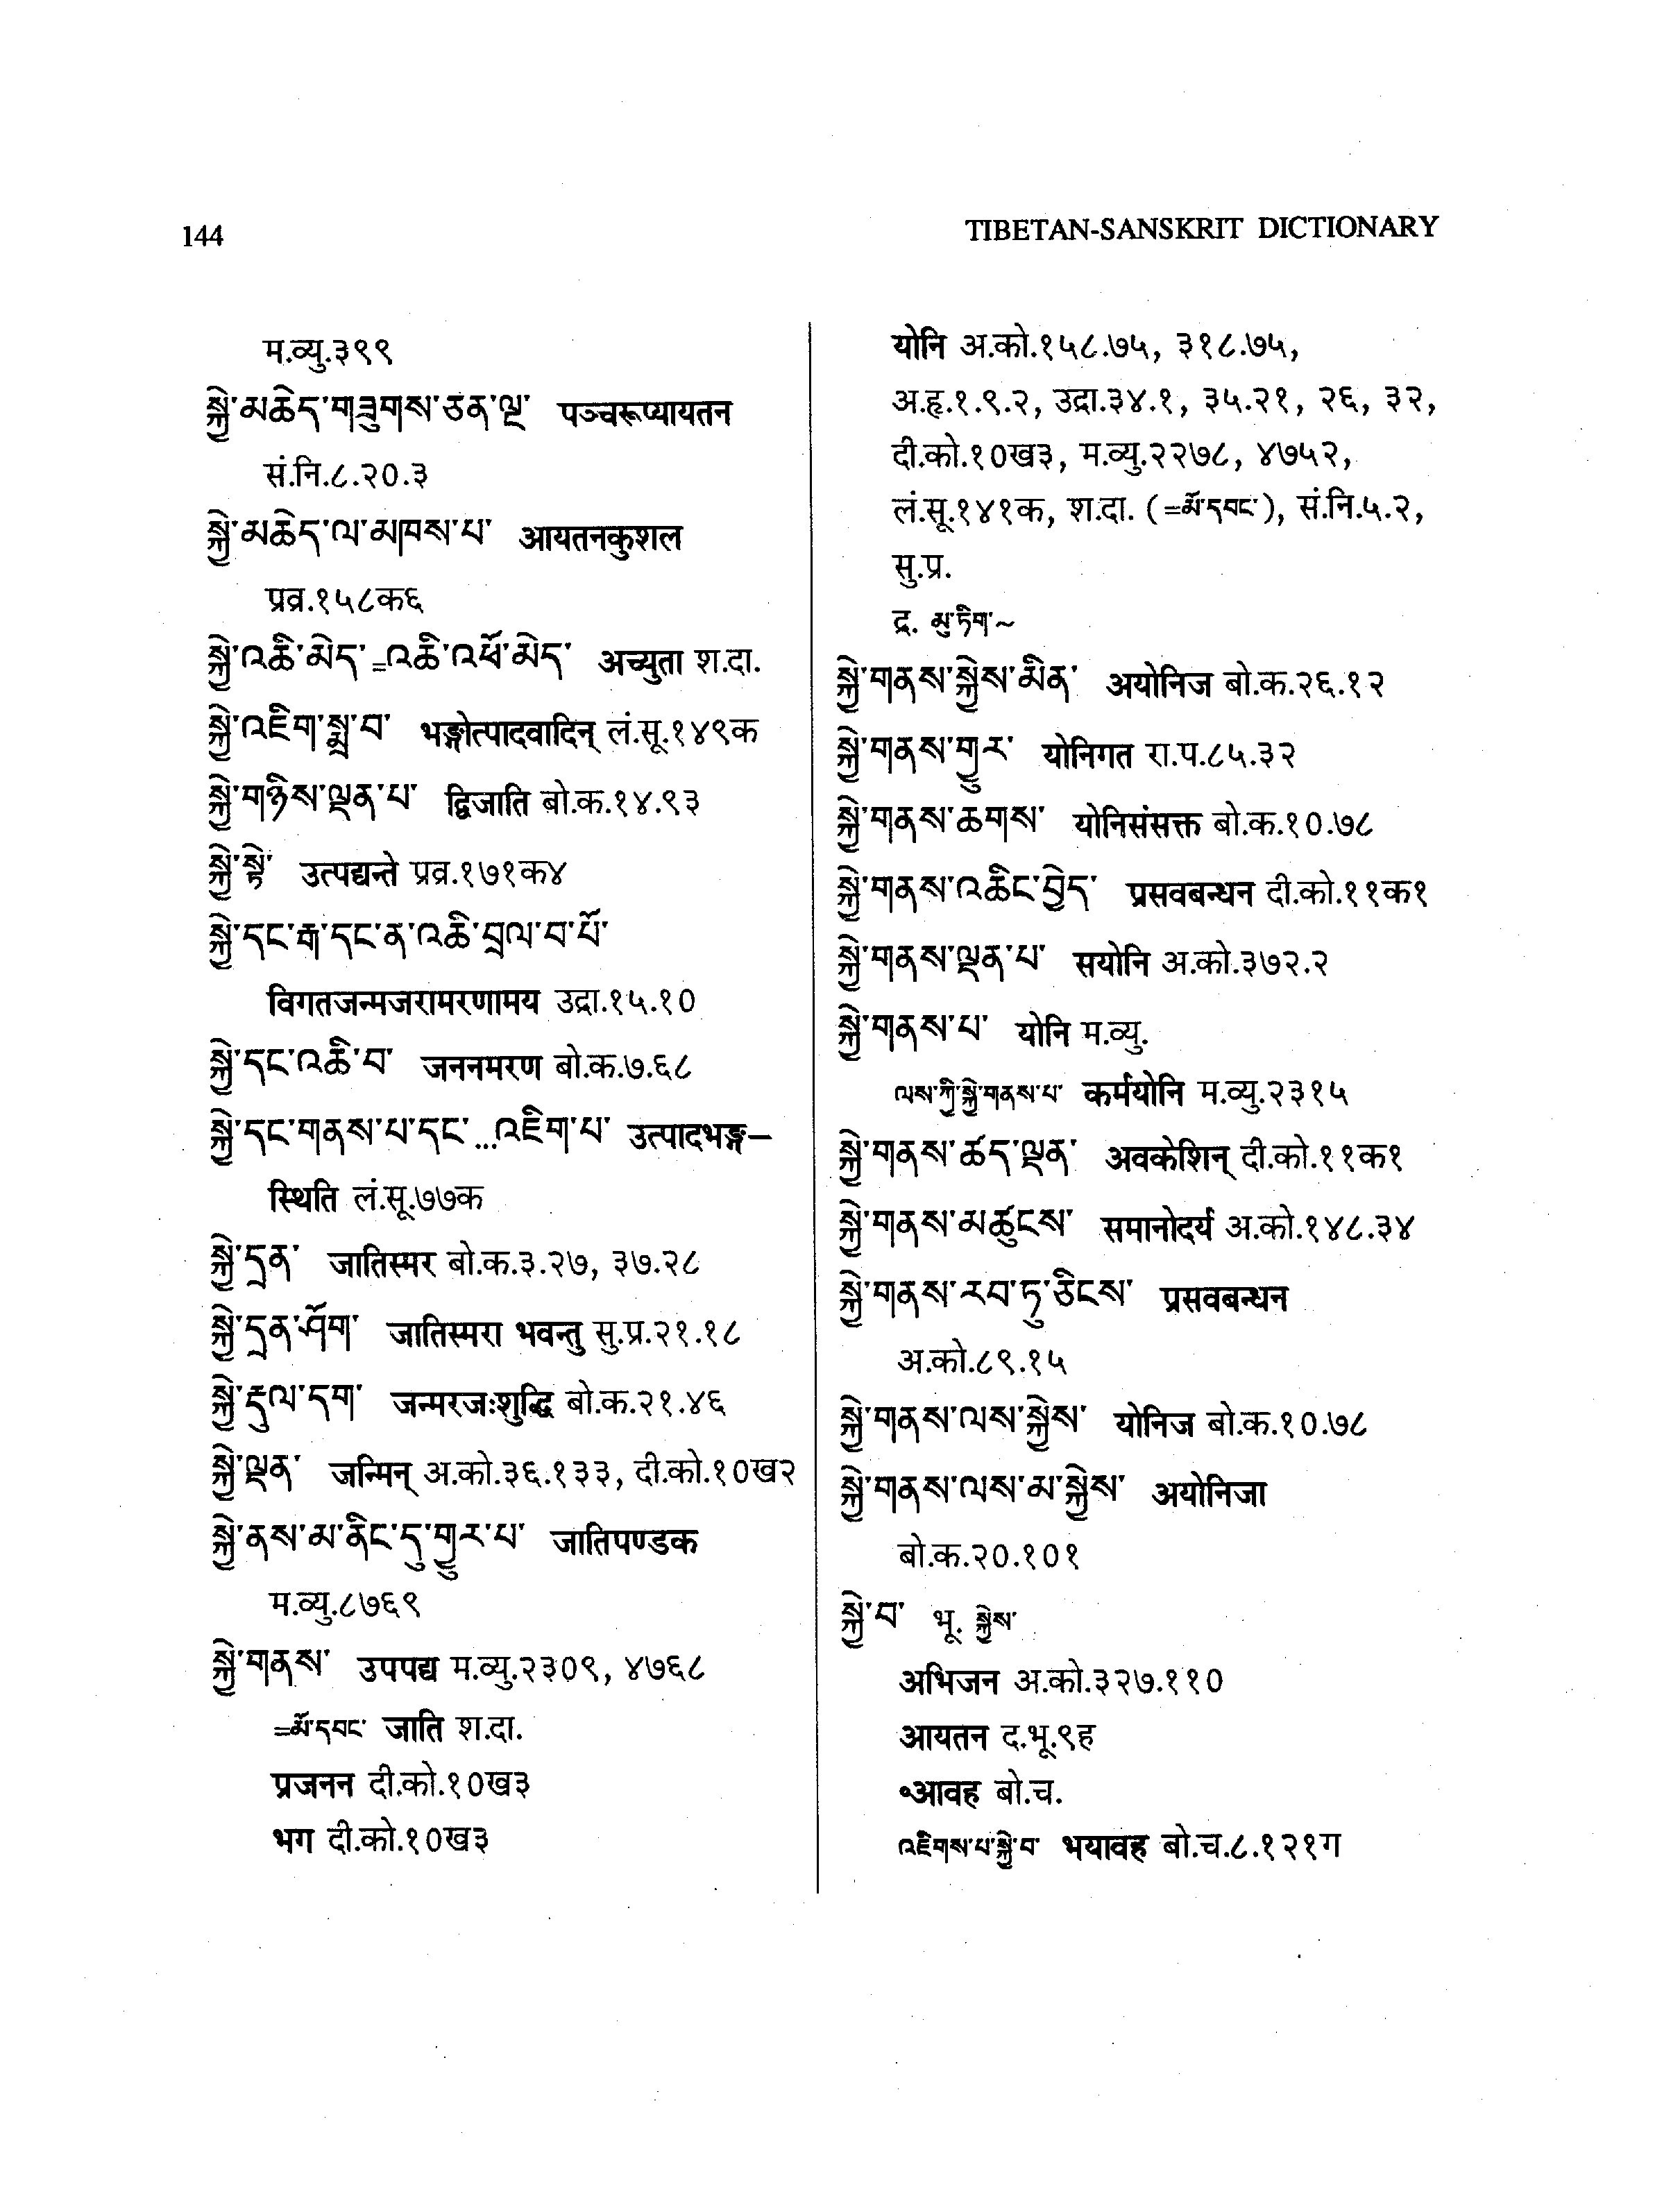 144
TIBETAN-SANSKRIT DICTIONARY
म.व्यु.३९९
སྐྱེ་མཆེད་གཟུགས་ཅན་ལྔ་ पञ्चरूप्यायतन
सं.नि.८.२०.३
སྐྱེ་མཆེད་ལ་མཁས་པ་ आयतनकुशल
प्रव्र.१५८क६
སྐྱེ་འཆི་མེད་=འཆི་འཕོ་མེད་ अच्युता श.दा.
སྐྱེ་འཇིག་སྨྲ་བ་ भङ्गोत्पादवादिन् लं.सू.१४९क
སྐྱེ་གཉིས་ལྡན་པ་ द्विजाति बो.क.१४.९३
སྐྱེ་སྟེ་ उत्पद्यन्ते प्रव्र.१७१क४
སྐྱེ་དང་རྒ་དང་ན་འཆི་བྲལ་བ་པོ་
विगतजन्मजरामरणामय उद्रा.१५.१०
སྐྱེ་དང་འཆི་བ་ जननमरण बो.क.७.६८
སྐྱེ་དང་གནས་པ་དང་...འཇིག་པ་ उत्पादभङ्ग–
स्थिति लं.सू.७७क
སྐྱེ་དྲན་ जातिस्मर बो.क.३.२७, ३७.२८
སྐྱེ་དྲན་ཤོག་ जातिस्मरा भवन्तु सु.प्र.२१.१८
སྐྱེ་རྡུལ་དག་ जन्मरजःशुद्धि बो.क.२१.४६
སྐྱེ་ལྡན་ जन्मिन् अ.को.३६.१३३, दी.को.१०ख२
སྐྱེ་ནས་མ་ནིང་དུ་གྱུར་པ་ जातिपण्डक
म.व्यु.८७६९
སྐྱེ་གནས་ उपपद्य म.व्यु.२३०९, ४७६८
=མོ་དབང་ जाति श.दा.
प्रजनन दी.को.१०ख३
भग दी.को.१०ख३
योनि अ.को.१५८.७५, ३१८.७५,
अ.हृ.१.९.२, उद्रा.३४.१, ३५.२१, २६, ३२,
दी.को.१०ख३, म.व्यु.२२७८, ४७५२,
लं.सू.१४१क, श.दा. (=མོ་དབང་), सं.नि.५.२,
सु.प्र.
द्र. མུ་ཏིག་~
སྐྱེ་གནས་སྐྱེས་མིན་ अयोनिज बो.क.२६.१२
སྐྱེ་གནས་གྱུར་ योनिगत रा.प.८५.३२
སྐྱེ་གནས་ཆགས་ योनिसंसक्त बो.क.१०.७८
སྐྱེ་གནས་འཆིང་བྱེད་ प्रसवबन्धन दी.को.११क१
སྐྱེ་གནས་ལྡན་པ་ सयोनि अ.को.३७२.२
སྐྱེ་གནས་པ་ योनि म.व्यु.
ལས་ཀྱི་སྐྱེ་གནས་པ་ कर्मयोनि म.व्यु.२३१५
སྐྱེ་གནས་ཚད་ལྡན་ अवकेशिन् दी.को.११क१
སྐྱེ་གནས་མཚུངས་ समानोदर्य अ.को.१४८.३४
སྐྱེ་གནས་རབ་ཏུ་ཅིངས་ प्रसवबन्धन
अ.को.८९.१५
སྐྱེ་གནས་ལས་སྐྱེས་ योनिज बो.क.१०.७८
སྐྱེ་གནས་ལས་མ་སྐྱེས་ अयोनिजा
बो.क.२०.१०१
སྐྱེ་བ་ भू. སྐྱེས་
अभिजन अ.को.३२७.११०
आयतन द.भू.९ह
॰आवह बो.च.
འཇིགས་པ་སྐྱེ་བ་ भयावह बो.च.८.१२१ग